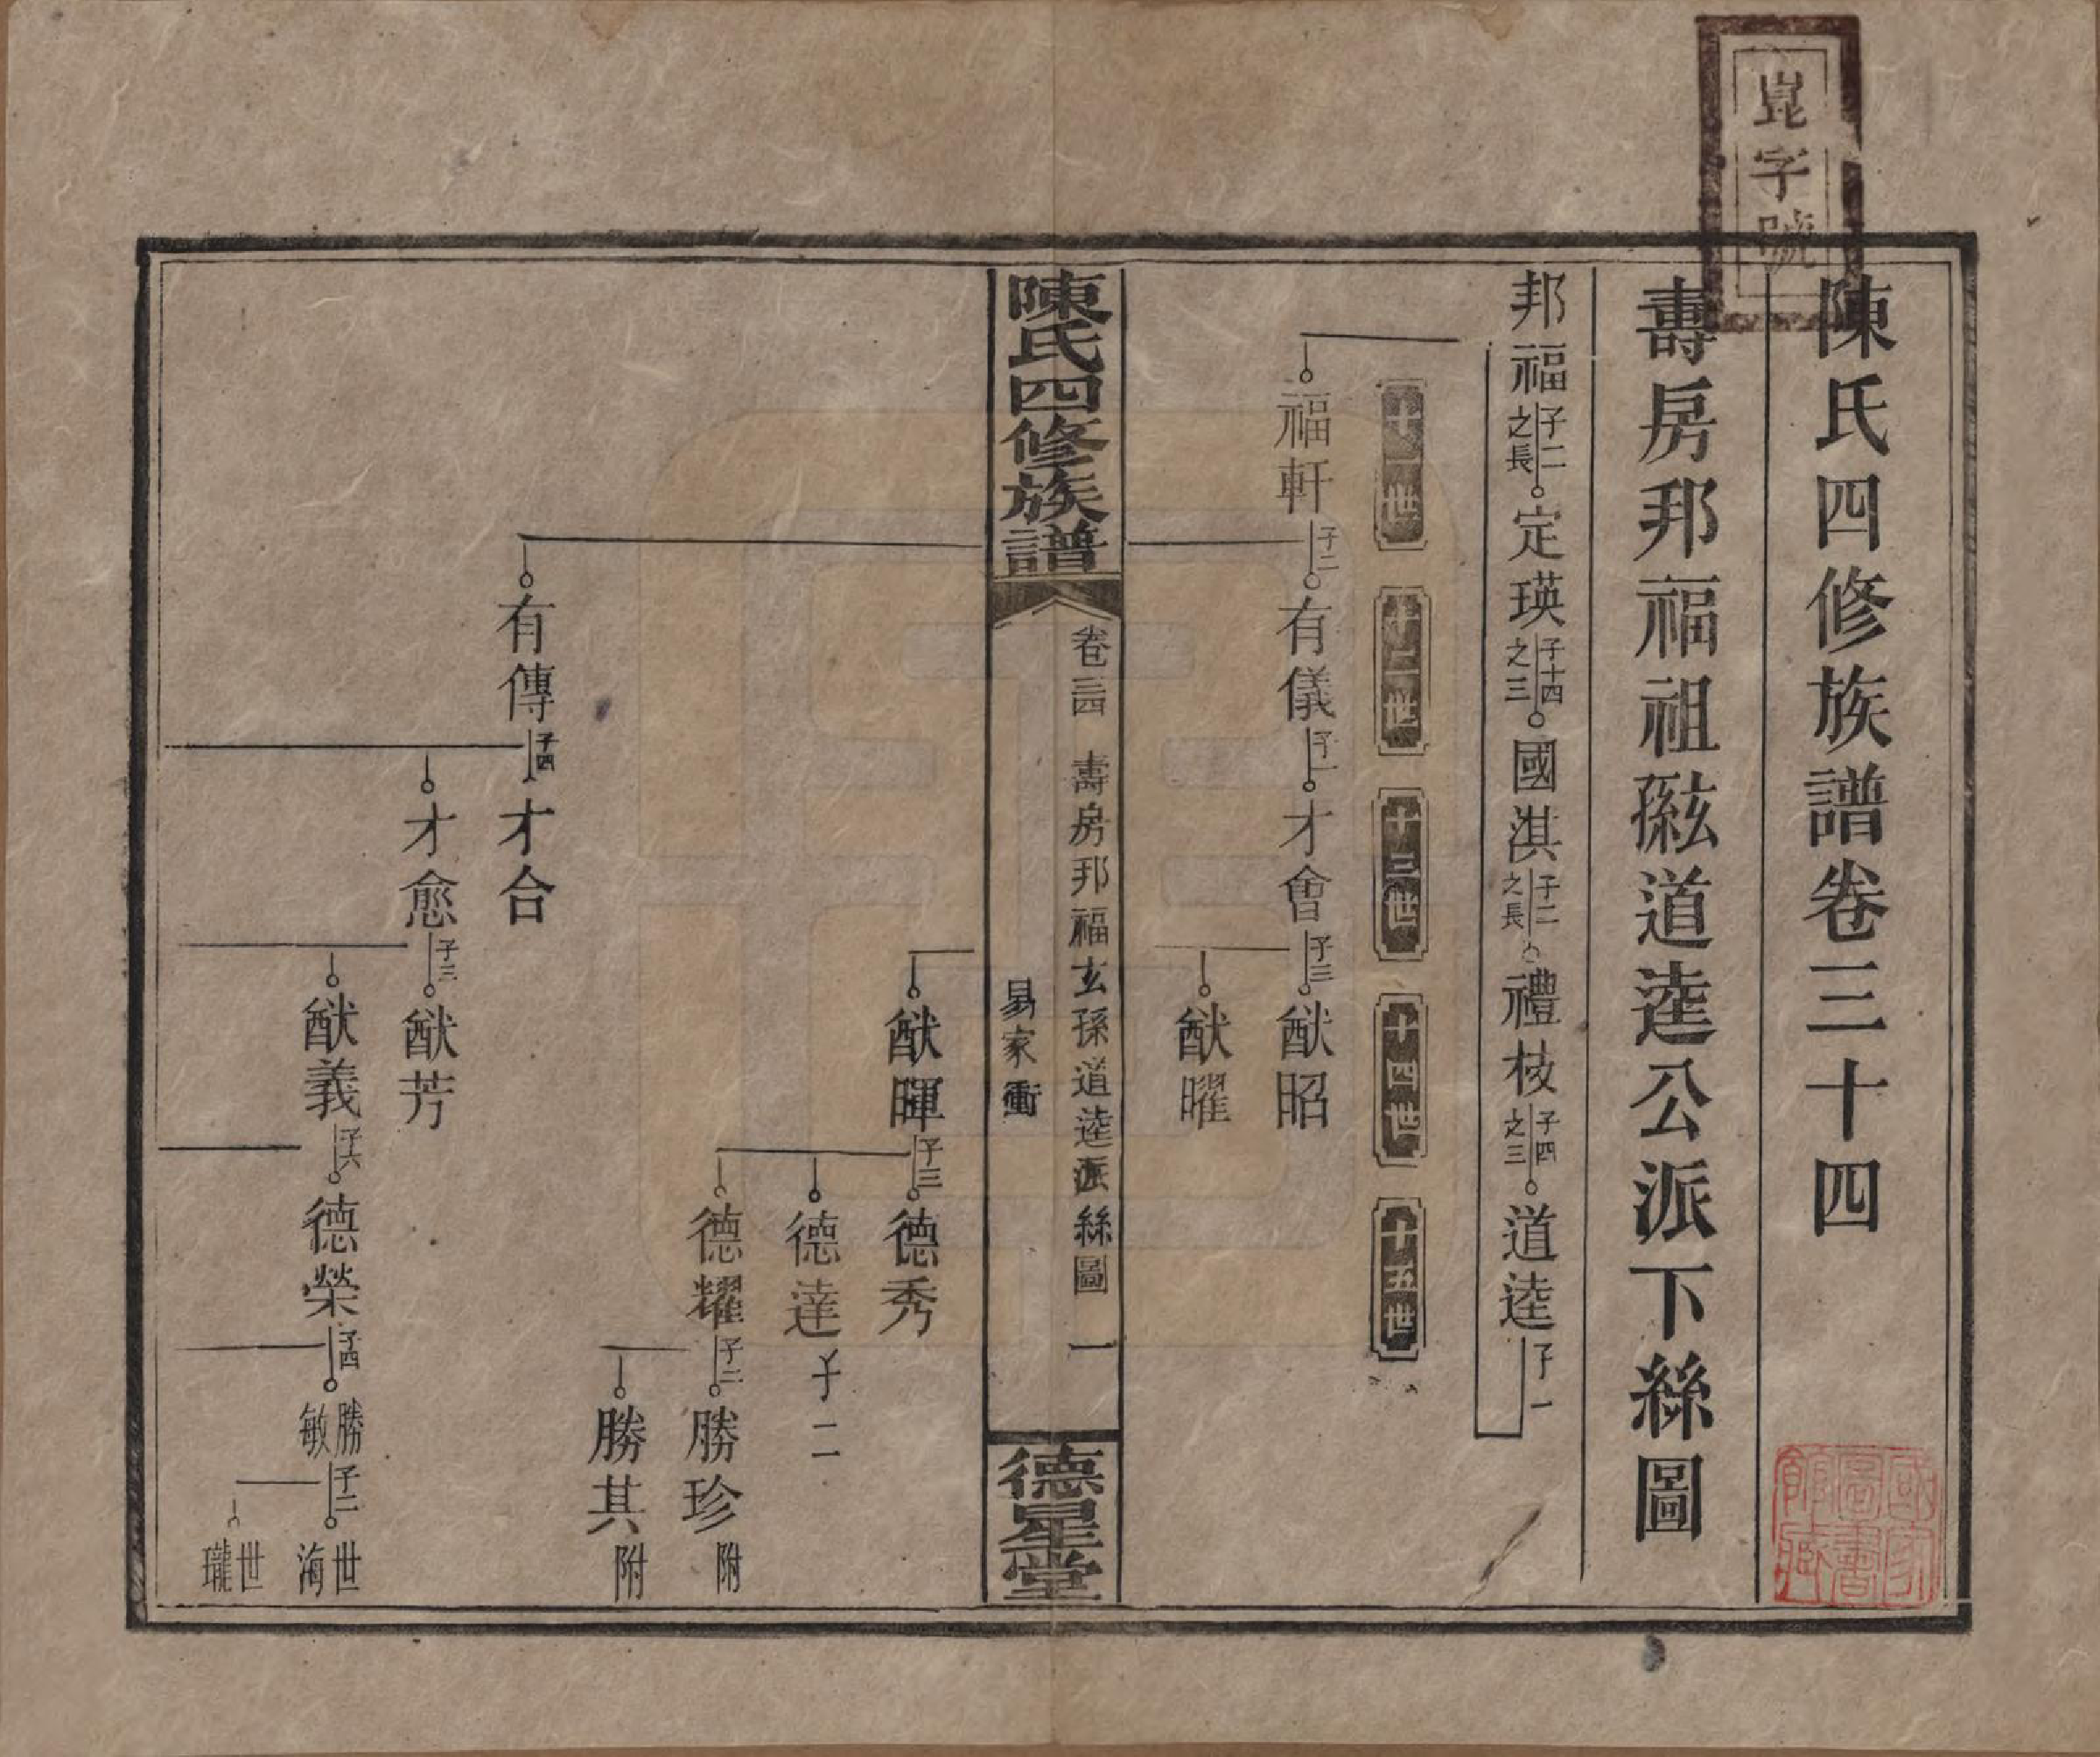 崑字號
陳氏四修族譜卷三十四
壽房邦福祖𤣥孫道逵公派下絲圖
邦福 子二之長 定瑛 子十四之三 國淇 子二之長 禮枝 子四之三 道逵 子一
十一世 十二世 十三世 十四世 十五世
福軒 子二 有儀 子一 才會 子三 猷昭
猷曜
陳氏四修族譜 卷三四 壽房邦福玄孫道逵派絲圖 一 德星堂
易家衝
猷暉 子三 德秀
德達 子二
德耀 子二 勝珍 附
勝其 附
有傳 子四 才合
才愈 子三 猷芳
猷義 子六 德榮 子四 勝敏 子二 世海
世瓏
國家圖書館藏書